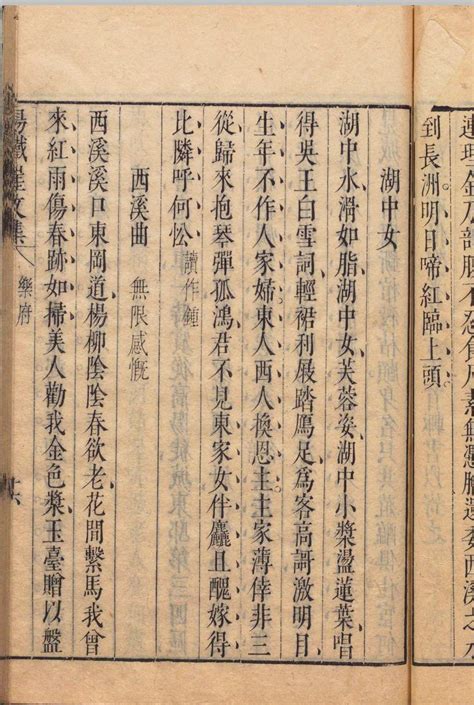 到長洲明日啼紅臨上頭
湖中女
湖中水滑如脂湖中女芙蓉姿湖中小槳盪蓮葉唱
得吳王白雪詞輕裙利屐踏鴈足為客高謌激明目
生年不作人家婦東人西人換恩主主家薄倖非三
從歸來抱琴彈孤鴻君不見東家女伴麤且醜嫁得
比隣呼何忪 讀作鍾
西溪曲 無限感慨
西溪溪口東岡道楊柳陰陰春欲老花間繫馬我曾
來紅雨傷春跡如掃美人勸我金色槳玉臺贈以盤
鐵崖文集 樂府